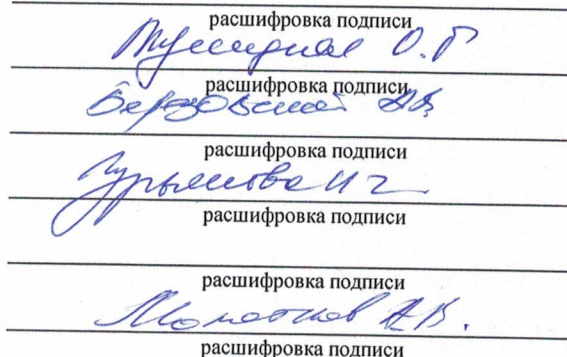 расшифровка подписи
О.Г
расшифровка подписи
Березовский АВ
расшифровка подписи
Гурьянова НГ
расшифровка подписи
расшифровка подписи
Молотков А.В.
расшифровка подписи